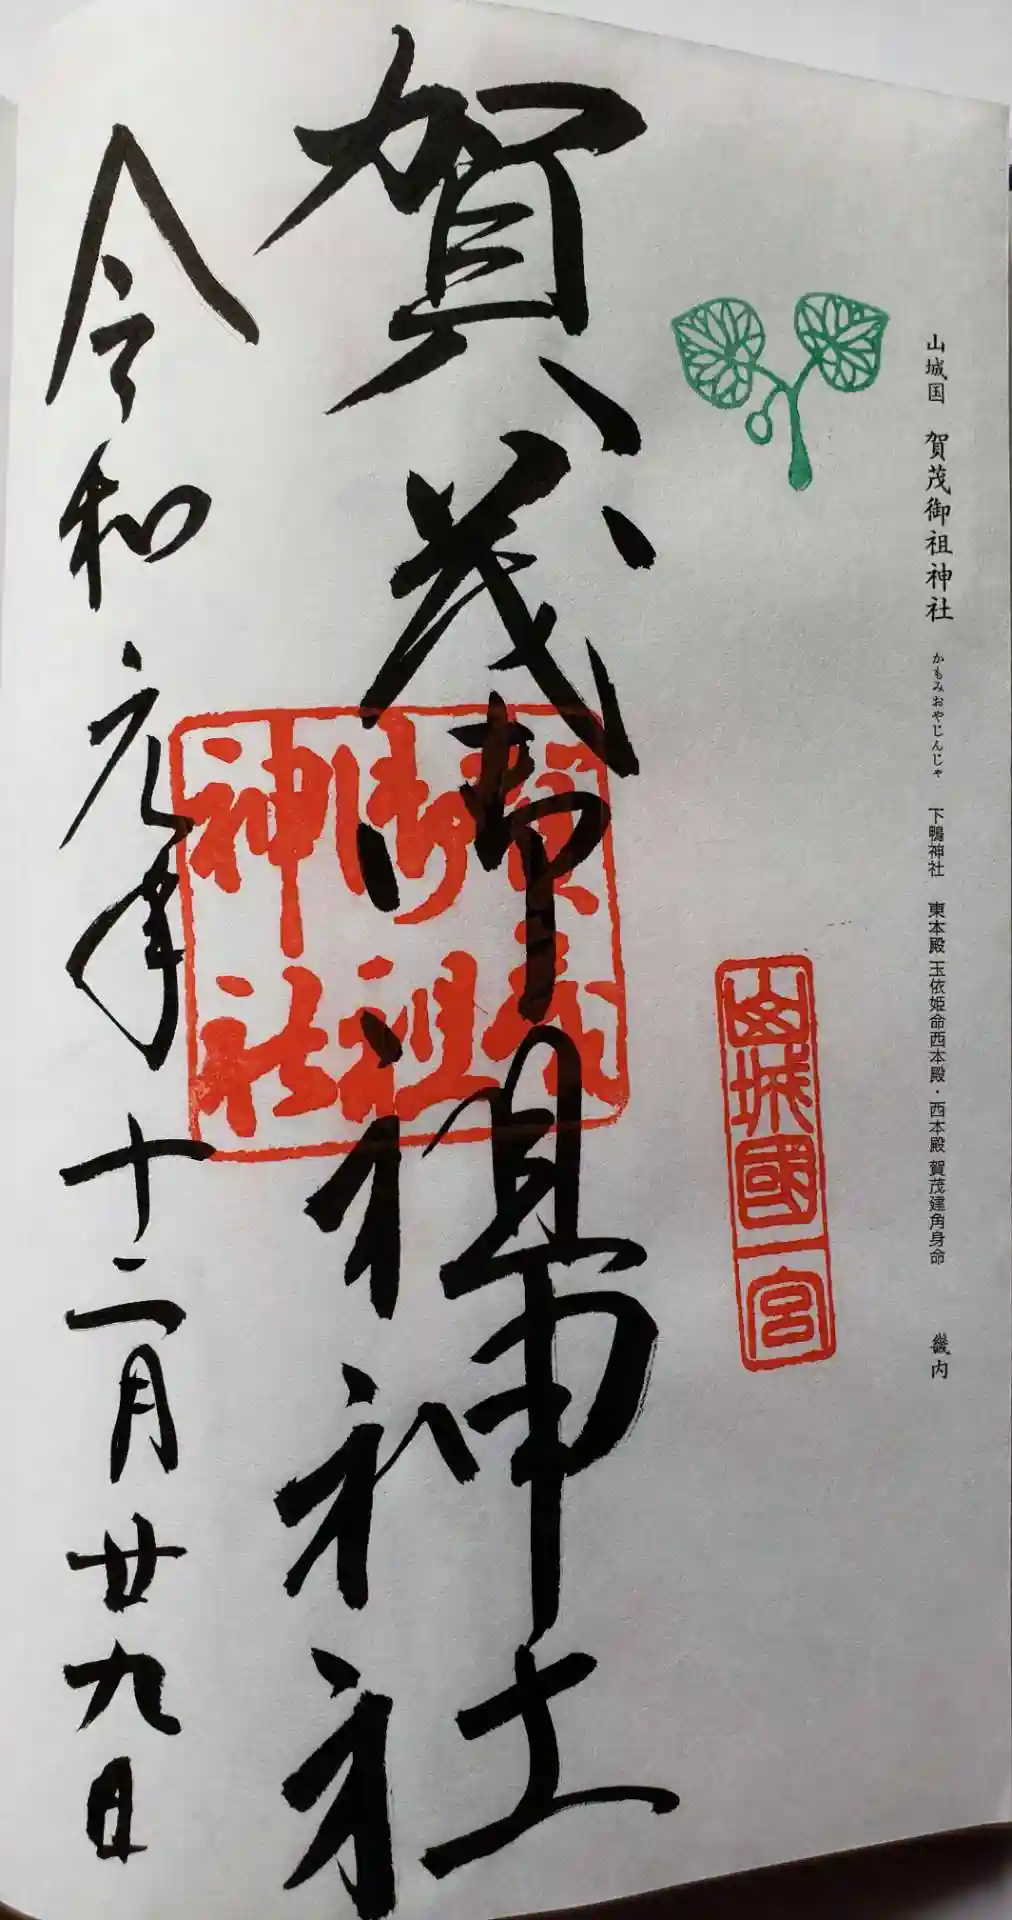 山城国 賀茂御祖神社 かもみおやじんじゃ 下鴨神社 東本殿 玉依姫命西本殿・西本殿 賀茂建角身命 畿内
山城國一宮
賀茂御祖神社
賀茂
御祖
神社
令和元年十二月廿九日